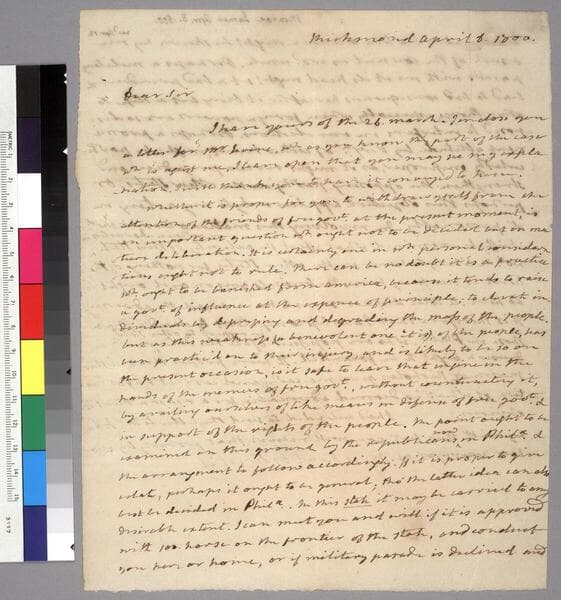 Richmond april 8. 1800.
Dear Sir
I have yours of the 26. march. I inclose you
a letter for Mr. Irvine, wh. as you know the part of the case
wh. is agnst me, I leave open that you may see my expla
nation. I wish thereafter to have it conveyed to him.
Whether it is proper for you to withdraw yrself from the
attention of the friends of free govt. at the present moment, is
an important question wh. ought not to be decided but on ma
ture deliberation. It is certainly one in wh. personal considera
tions ought not to rule. There can be no doubt it is a practice
wh. ought to be banished from america, because it tends to raise
a govt. of influence at the expence of principle, to elevate in
dividuals by depressing and degrading the mass of the people
but as this weakness (a benevolent one it is) of the people has
been practic'd on to their injury, and is likely to be so on
the present occasion, is it safe to leave that engine in the
hands of the enemies of free govt., without counteracting it,
by availing ourselves of like means in defense of free govt. &
in support of the rights of the people. The point ought to be
examined on this ground by the republicans now in Phila. &
the arrangment to follow accordingly. If it is proper to given
eclat, perhaps it ought to be general; tho' the latter idea can also
best be decided in Phila. In this State it may be carried to any
desirable extent. I can meet you and will if it is approved
with 100 horse on the frontier of the state, and conduct
you here or home, or if military parade is declined and